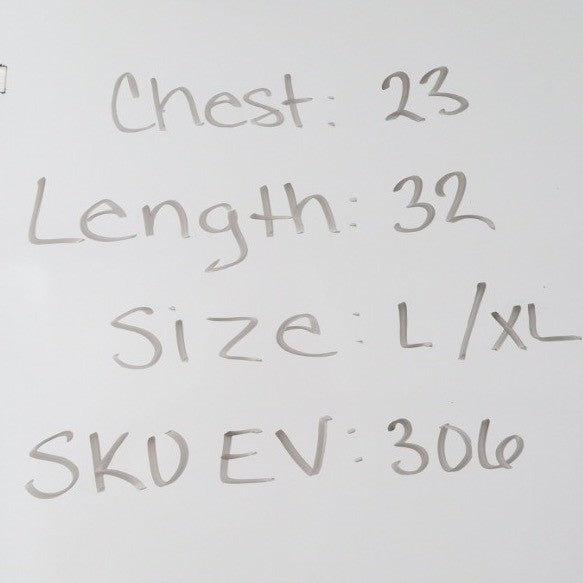 Chest: 23
Length: 32
Size: L/XL
SKU EV: 306